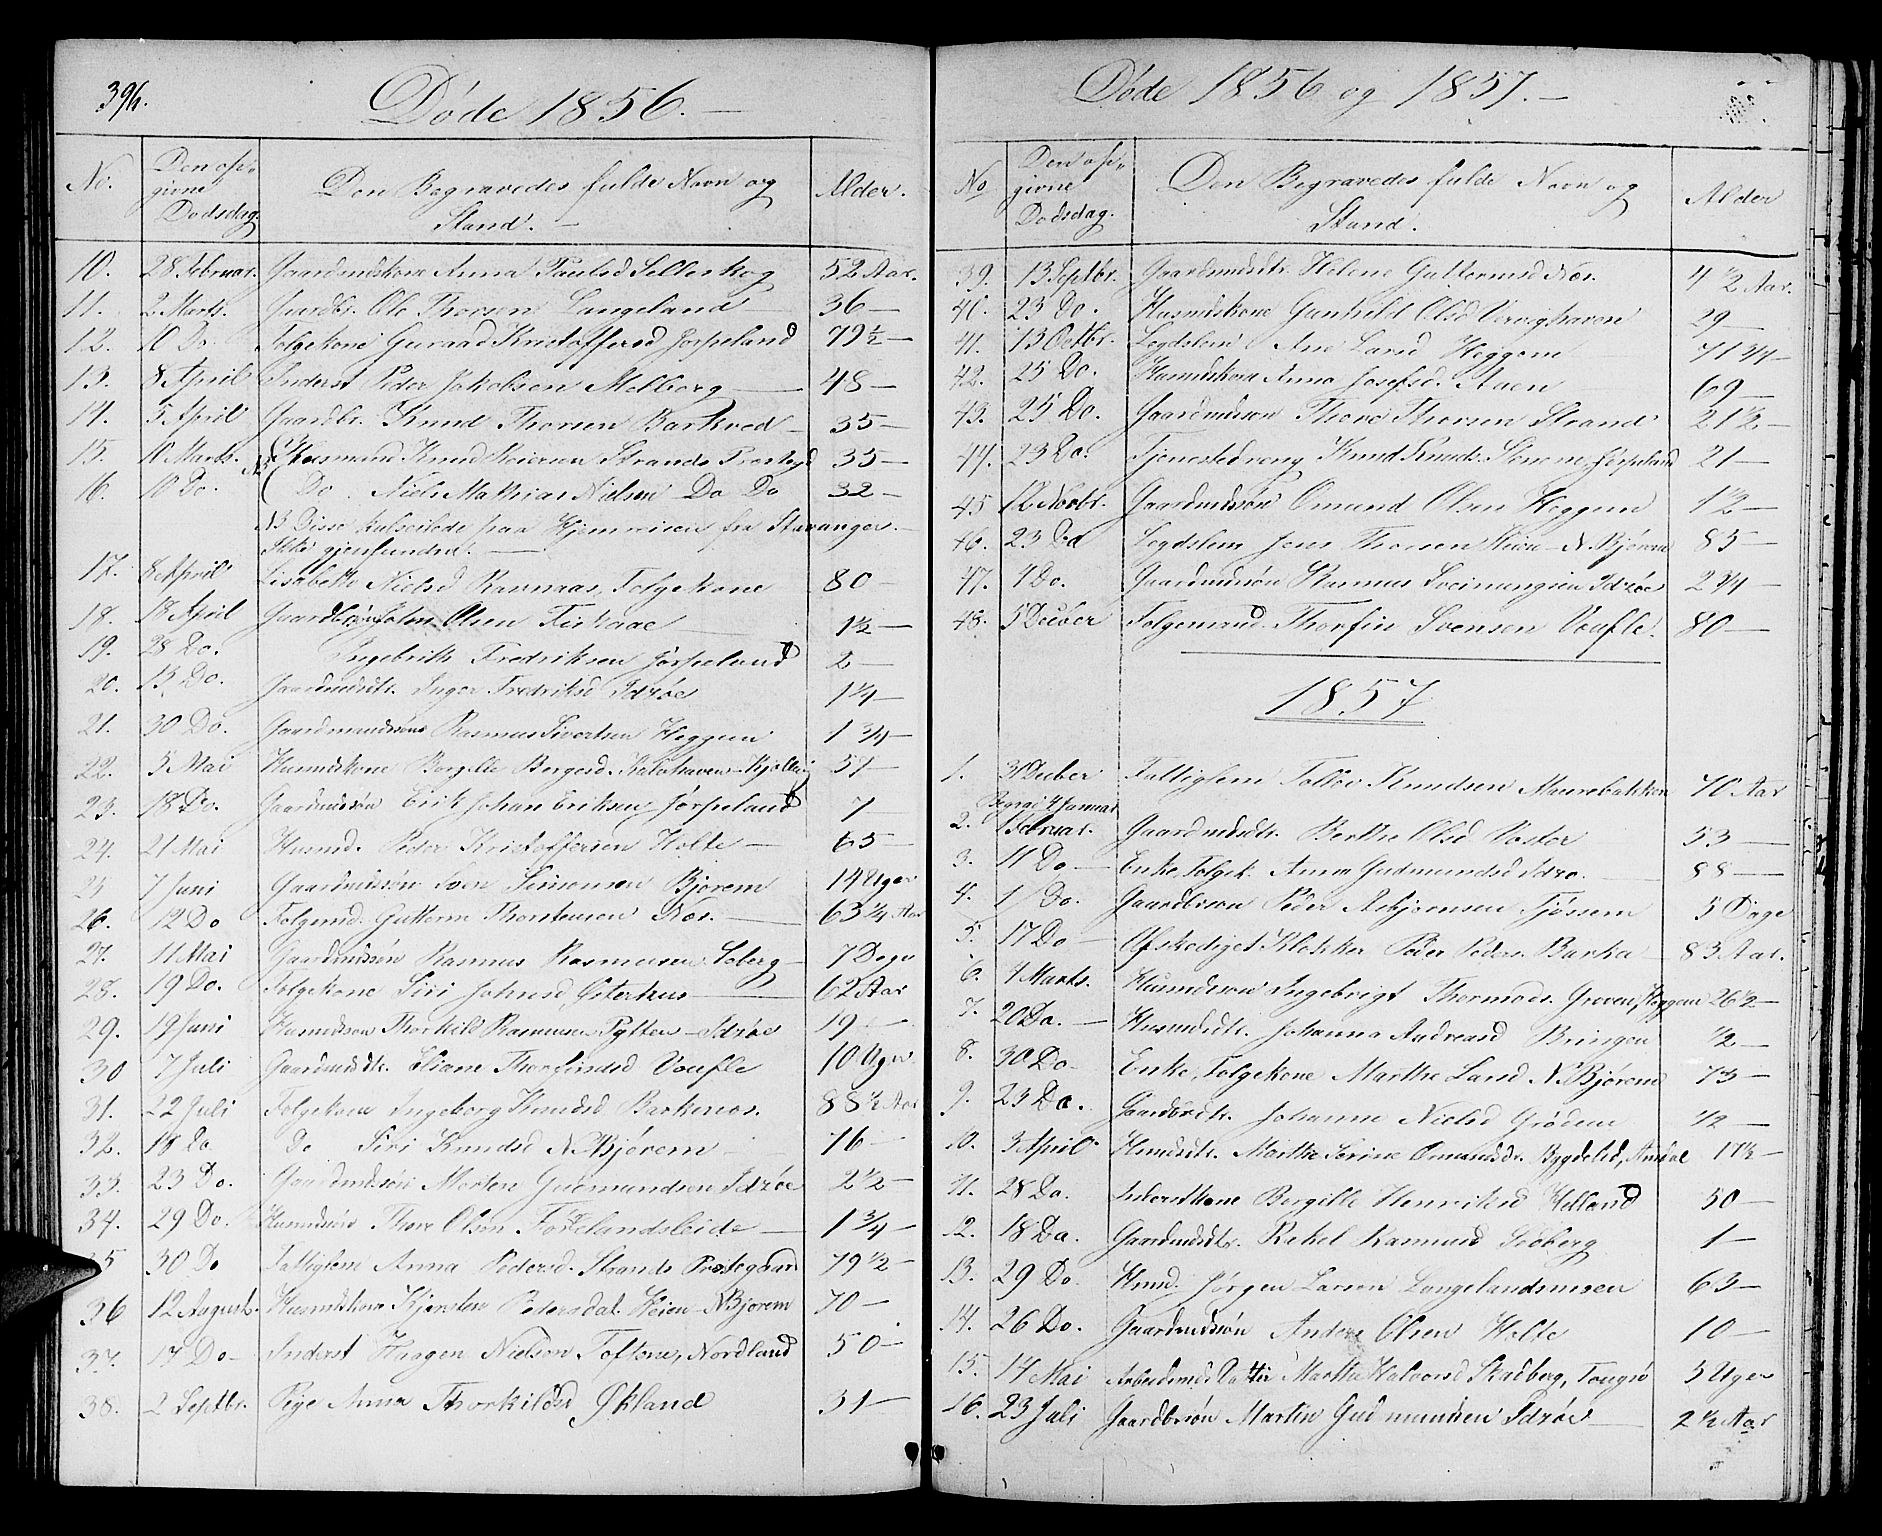 396.
Døde 1856.
No.
Den op-
givne
Dødsdag.
Den Begravedes fulde Navn og
Stand.
Alder.
10. 28 Februar. Gaardmdskone Anna Paulsd Selleskog 52 Aar.
11. 2 Marts. Gaardbr. Ole Thorsen Langeland 36 —
12. 10 Do. Folgekone Guraad Kristoffersd Jørpeland 79 ½ —
13. 8 April Inderst Peder Jakobsen Melberg 48 —
14. 5 April Gaardbr. Knud Thorsen Barkved 35 —
15. 10 Marts. Knud Strands Prestegd 35 —
16. 10 Do. Do. Niels Mathias Nielsen Do Do 32 —
NB Disse kulseilede paa Hjemreisen fra Stavanger. —
Ikke gjenfundne. —
17. 8 April Lisabeth Nielsd Ravnaas, Folgekone 80 —
18. 18 April John Olsen Fiskaae 1½ —
19. 28 Do. Ingebrikt Fredriksen Jørpeland 2 —
20. 13 Do. Gaardmdsdtr. Inger Fredriksd Idzøe 1¼ —
21. 30 Do. Gaardmandssøns Rasmus Sivertsen Heggum 1 ¾ —
22. 5 Mai Husmdskone Borgille Borgersd. 51 —
23. 18 Do. Gaardmdssøn Erik Johan Eriksen Jørpeland 7 —
24. 21 Mai Husmd. Peder Kristoffersen Holte — 65 —
25 7 Juni Gaardmdssøn Sven Simonsen Bjørem 14 Uger
26. 12 Do Folgemd. Guttorm Thorstensen Nor. — 63 ¼ Aar
27. 11 Mai Gaardmdssøn Rasmus Rasmussen Soberg — 7 Dage
28. 19 Do. Folgekone Siri Johnsd Østerhus 62 Aar
29. 19 Juni Husmdssøn Thorkild Rasmussen Pytten — Idzøe 19 —
30 7 Juli Gaardmdsdtr. Eliane Thorfinsd Voufle 10 Uger.
31. 22 Juli Folgekone Ingeborg Knudsd Barkenes. 88 ½ Aar
32. 18 Do Do Siri Knudsd N. Bjørem 76 —
33. 23 Do. Gaardmdssøn Morten Gudmundsen Idzøe 2½ —
34. 29 Do. Husmdssøn Thore Olsen Fosselandsleide — 1 ¾ —
35 30 Do Fattiglem Anna Pedersd. Strands Prestegaard 79 ½ —
36 12 August. Husmdskone Kjersten Pedersdal. Heien — N Bjørem 70 —
37. 17 Do — Inderst Haagen Nielsen Toftene, Nordland 50 —
38. 2 Septbr. Pige Anna Thorkildsd Økland 31 —
Døde 1856 og 1857. —
No
Den op-
givne
Dødsdag.
Den Begravedes fulde Navn og
Stand.
Alder
39. 13 Septbr. Gaardmdsdtr. Helene Guttormsd Nor. 4 ½ Aar.
40. 23 Do. Husmdskone Gunhild Olsd 29 —
41. 13 Octbr. Legdslem Ane Larsd Heggum 71 ¾ —
42. 25 Do. Husmdskone Anna Josefsd. Aaen 69 —
43. 25 Do. Gaardmdssøn Thore Thorsen Strand 21½ —
44. 23 Do. Tjenestedreng Knud Knuds. Jørpeland 21 —
45 12 Novbr. Gaardmdssøn Omund Olsen Heggum 1½ —
46. 23 Do Legdslem Jens Thorsen Heien — N. Bjørem 85 —
47. 4 Do. Gaardmdssøn Rasmus Sveinungsen Idzøe 2 ¾ —
48. 5 Decber Folgemand Thorfin Svensen Voufle. 80 —
1857
1. 31 Decber Fattiglem Tollev Knudsen Maurebakken 70 Aar
Begr. 4 Januar
2. 1 Februar. Gaardmdsdtr. Berthe Olsd Voster 53 —
3. 11 Do — Enke, Folgek. Anna Gudmundsd Idzø. 88 —
4. 1 Do. Gaardbrsøn Peder Asbjørnsen Tjøssem 5 Dage
5. 17 Do — Afskediget Klokker Peder Peders. Barka 83 Aar.
6. 4 Marts. Husmdssøn Ingebrigt Thormods. Groven, Heggum 26½ —
7. 20 Do. — Husmdsdtr. Johanna Andreasd Bringen ½ —
8. 30 Do. Enke, Folgekone Marthe Larsd N. Bjørem 73 —
9. 23 Do. Gaardbrdtr. Johanne Nielsd Grødem ½ —
10. 3 April Husmdsdtr. Marthe Serine Omundsdtr. Bygdelid, 17½ —
11. 28 Do. Inderstkone Borgille Henriksd Helland 50 —
12. 18 Do. Gaardmdsdtr. Rakel Rasmusd Soberg 1 —
13. 29 Do. Husmd. Jørgen Larsen Langelandsmoen 63 —
14. 26 Do. Gaardmdssøn Anders Olsen Holte 10 —
15. 14 Mai Arbeidsmds Datter Martha Halvorsd Skadberg, Tougsø 5 Uger
16. 23 Juli Gaardbrsøn Martin Gudmundsen Idzøe 2 ½ Aar